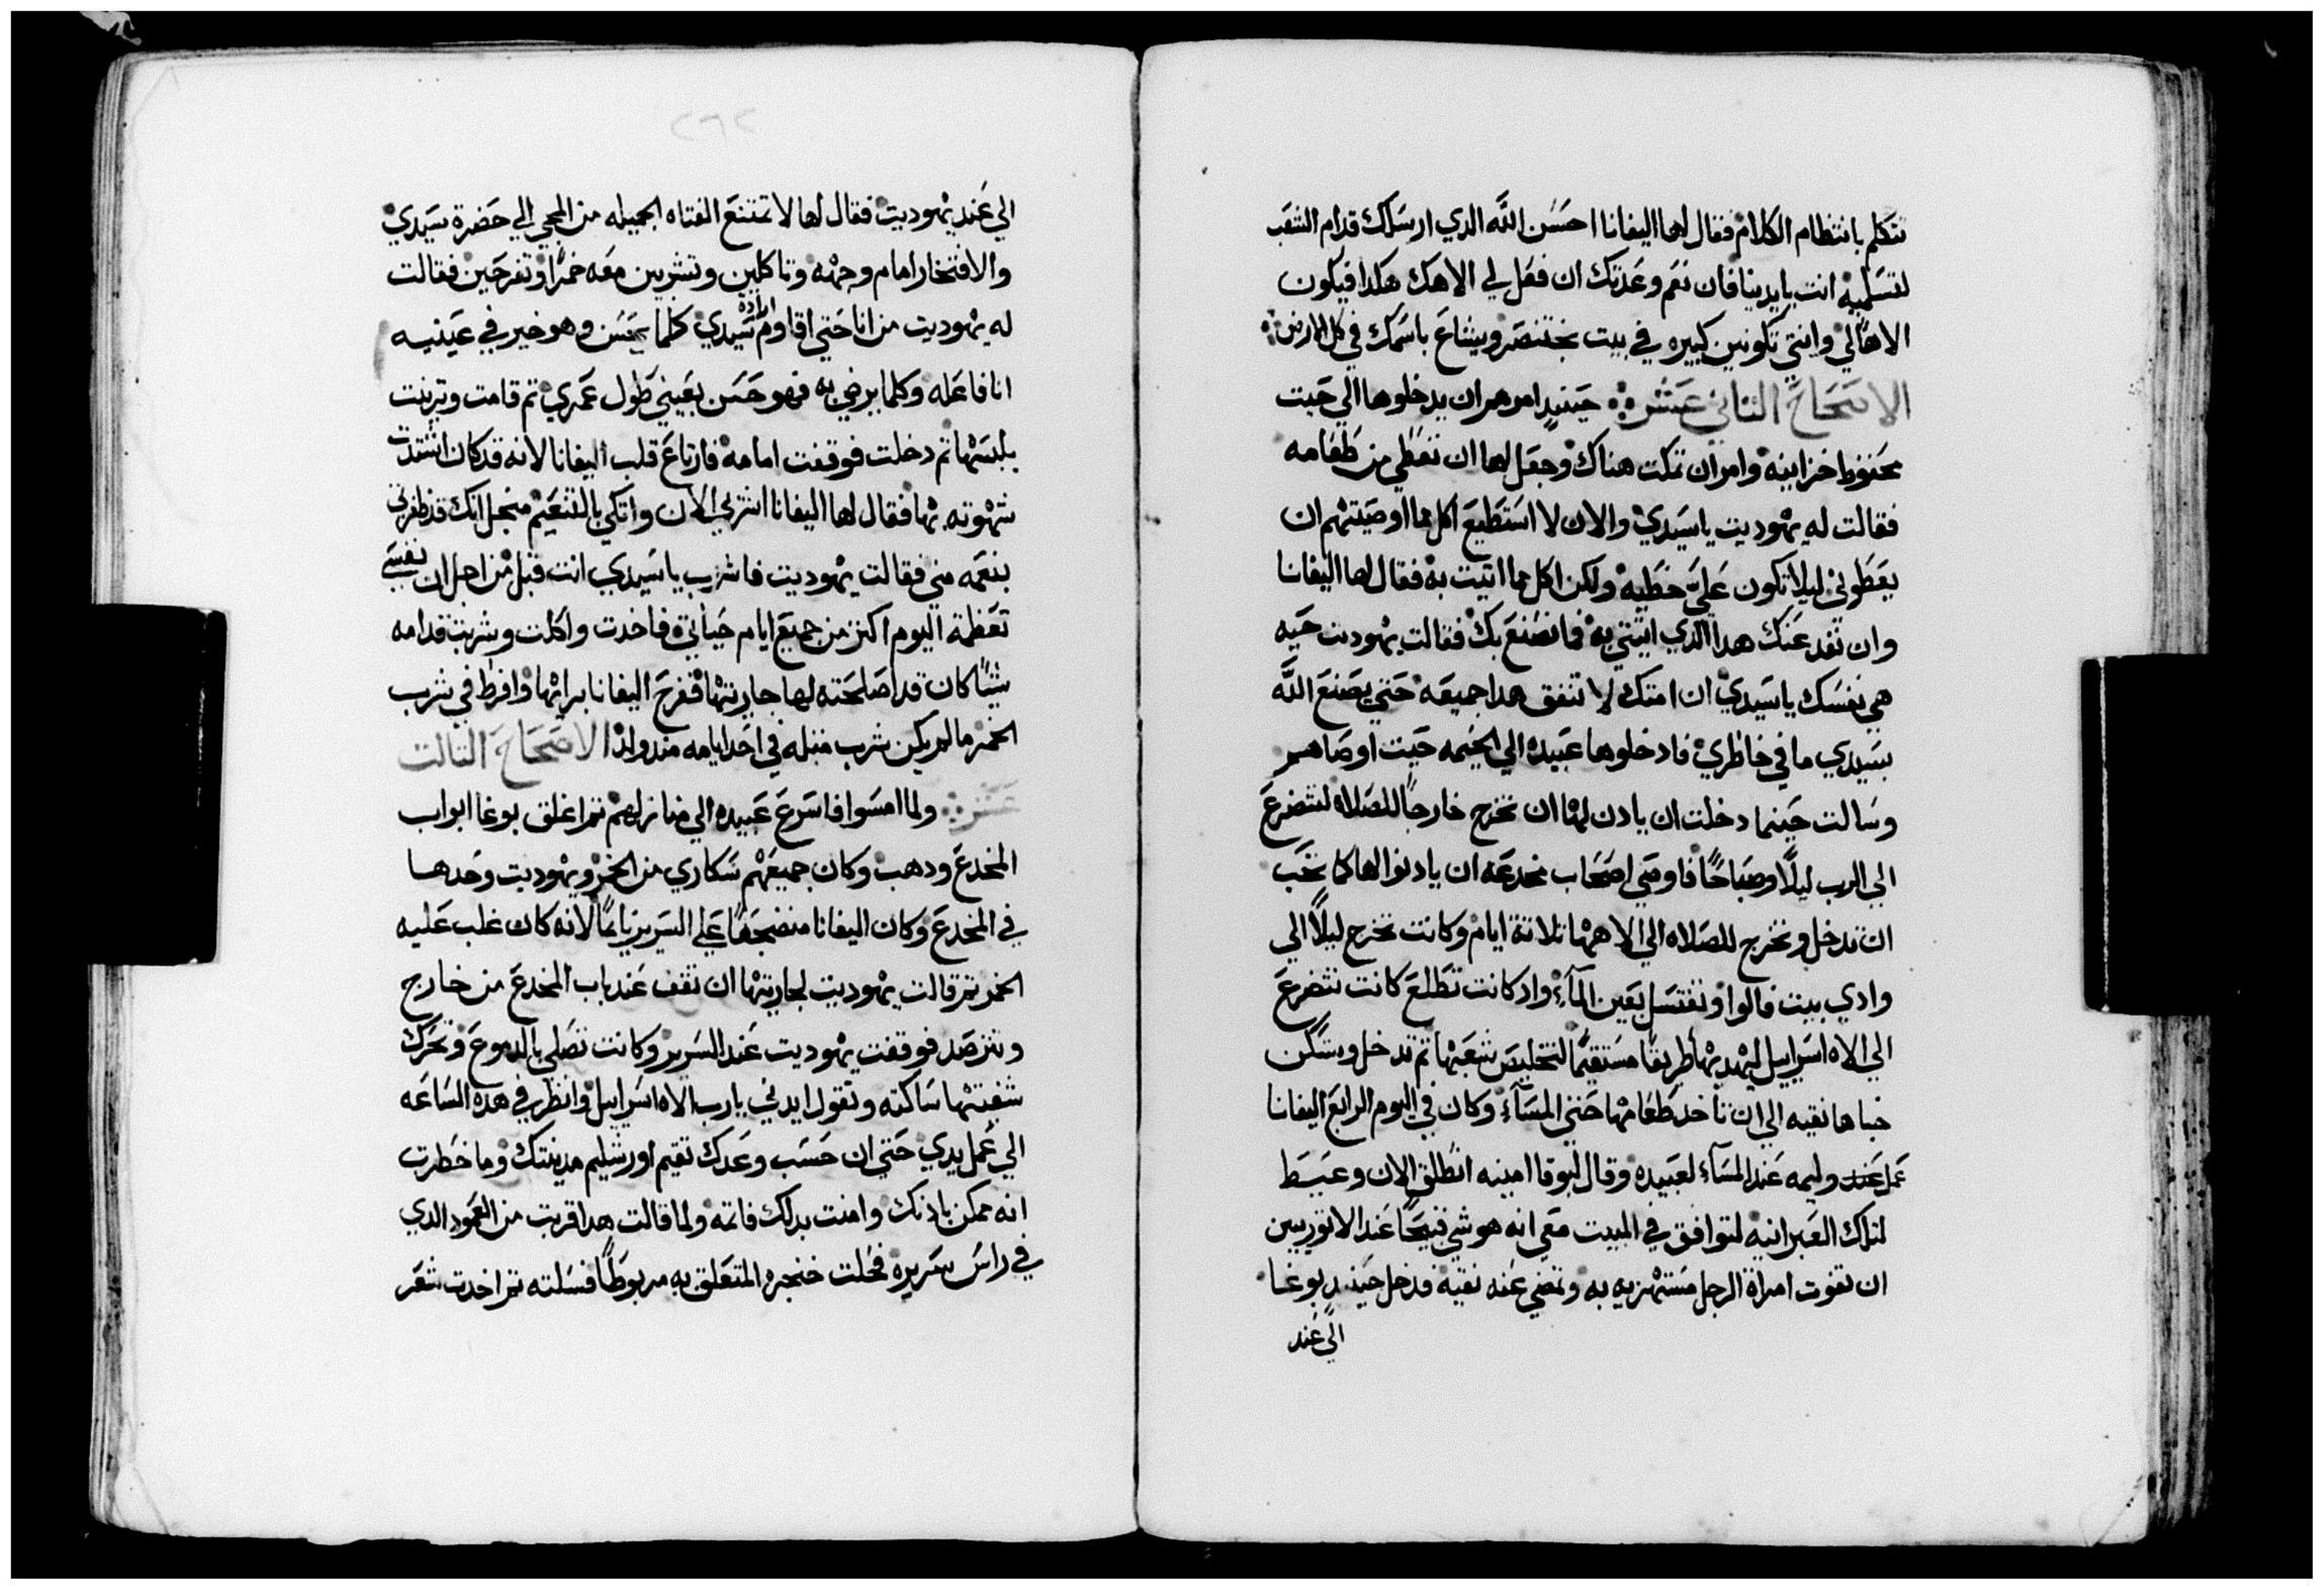 تتكلم بانتظام الكلام فقال لها اليفانا احسَن اللَّه الدي ارسَلك قدام الشعَب
لتسَلميه انت بايدينا فان نعَم وعَدتك ان فعَل لي الاهك هكدا فيكون
الاهًا لي وانتي تكونين كبيره في بيت بختنصَر ويشاعَ باسمَك في كل الارض
الاصَحَاحَ التاني عَشر حَينيدٍ امرهم ان يدخلوها الي حَيت
محَفوظ خزاينه وامر ان تمكت هناك وجعَل لها ان تعَطي من طعَامه
فقالت له يهوديت ياسَيدي والان لا اسَتطيعَ اكل مما اوصَيتهم ان
يعَطوني ليلا تكون عَليَّ خطَيه ولكن اكل مما اتيت به فقال لها اليفانا
وان نفد عَنك هدا الدي اتيتي به فما نصَنعَ بك فقالت يهوديت حَيه
هي نفسَك ياسَيدي ان امتك لا تنفق هدا جميعَه حَتي يصَنعَ اللَّه
بيدي ما في خاطري فادخلوها عَبيده الي الخيمه حَيت اوصَاهم
وسَالت حَينما دخلت ان يادن لها ان تخرج خارجًا للصَلاه لتتضرعَ
الي الرب ليلًا وصَباحًا فاوصَي اصَحَاب مخدعَه ان يادنوا لها كما تحَب
ان تدخل وتخرج للصَلاه الي الاهها تلاتة ايام وكانت تخرج ليلًا الي
وادي بيت فالوا وتغتسَل بعَين المآء واد كانت تطَلعَ كانت تتضرعَ
الي الاه اسَراييل ليهديها طريقًا مسَتقيمًا لتخليصَ شعَبها تم تدخل وتسَكن
خباها نقيه الي ان تاخد طعَامها حَتي المسَآء وكان في اليوم الرابعَ اليفانا
عَمل عَند وليمه عَند المسَآء لعَبيده وقال لبوغا امينه انطَلق الان وعَيـــط
لتلك العَبرانيه لتوافق في المبيت معَي انه هو شي قبيحًا عَند الاتوريين
ان تفوت امراة الرجل مسَتهزيه به وتمضي عَنه نقيه فدخل حَينيدٍ بوغا
الي عَند
٢٦٢
الي عَند يهوديت فقال لها لا تمتنعَ الفتاه الجميله من المجي الي حَضرة سَيدي
والافتخار امام وجهه وتاكلين وتشربين معَه خمرًا وتفرحَين فقالت
له يهوديت من انا حَتي اقاوم ارادة سَيدي كلما يحَسَن وهو خير في عَينيه
انا فاعَله وكلما يرضي به فهو حَسَن بعَيني طول عَمري تم قامت وتزينت
بلبسَها تم دخلت فوقفت امامه فارتاعَ قلب اليفانا لانه قد كان اشتدت
شهوته بها فقال لها اليفانا اشربي الان واتكي بالتنعَيم منجل انك قد ظفرتي
بنعَمه مني فقالت يهوديت فاشرب ياسَيدي انت قبل من اجل ان نفسَي
تعَظمة اليوم اكتر من جميعَ ايام حَياتي فاخدت واكلت وشربت قدامه
شيًا كان قد اصَلحَته لها جاريتها ففرحَ اليفانا برايها وافرط في شرب
الخمر مالم يكن شرب متله في احَد ايامه مند ولد الاصَحَاحَ التالت
عَشر ولما امسَوا فاسَرعَ عَبيده الي منازلهم تم اغلق بوغا ابواب
المخدعَ ودهب وكان جميعَهم سَكاري من الخمر ويهوديت وحَدها
في المخدعَ وكان اليفانا منضجعًا عَلي السَرير نايمًا لانه كان غلب عَليه
الخمر تم قالت يهوديت لجاريتها ان تقف عَند باب المخدعَ من خارج
وتترصَد فوقفت يهوديت عَند السَرير وكانت تصَلي بالدموعَ وتحَرك
شفتيها سَاكته وتقول ايدني يارب الاه اسَراييل وانظر في هده السَاعَه
الي عَمل يدي حَتي ان حَسَب وعَدك تقيم اورشليم مدينتك وما خطرت
انه ممكن بادنك وامنت بدلك فاتمه ولما قالت هدا قربت من العَمود الدي
في راسَ سَريره فحَلت خنجره المتعَلق به مربوطًا فسَلته تم اخدت شعَر